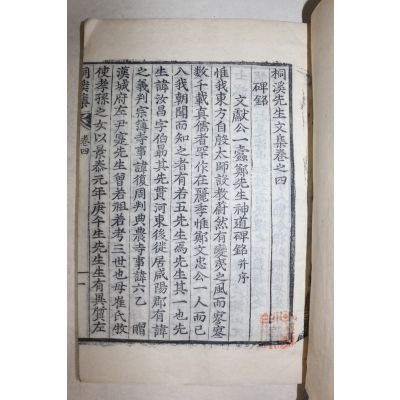 桐溪先生文集卷之四
碑銘
文獻公一蠹鄭先生神道碑銘 并序
惟我東方自殷太師設敎蔚然有變夷之風而寥寥
數千載眞儒者罕作在麗季惟鄭文忠公一人而已
入我朝聞而知之者有若五先生爲先生其一也先
生諱汝昌字伯勗其先貫河東後徙居咸陽郡有諱
之義判宗簿寺事諱復周判典農寺事諱六乙 贈
漢城府左尹寔先生曾若祖若考三世也母崔氏牧
使孝孫之女以景泰元年庚午生先生先生生有異質左
桐溪集
卷四
一